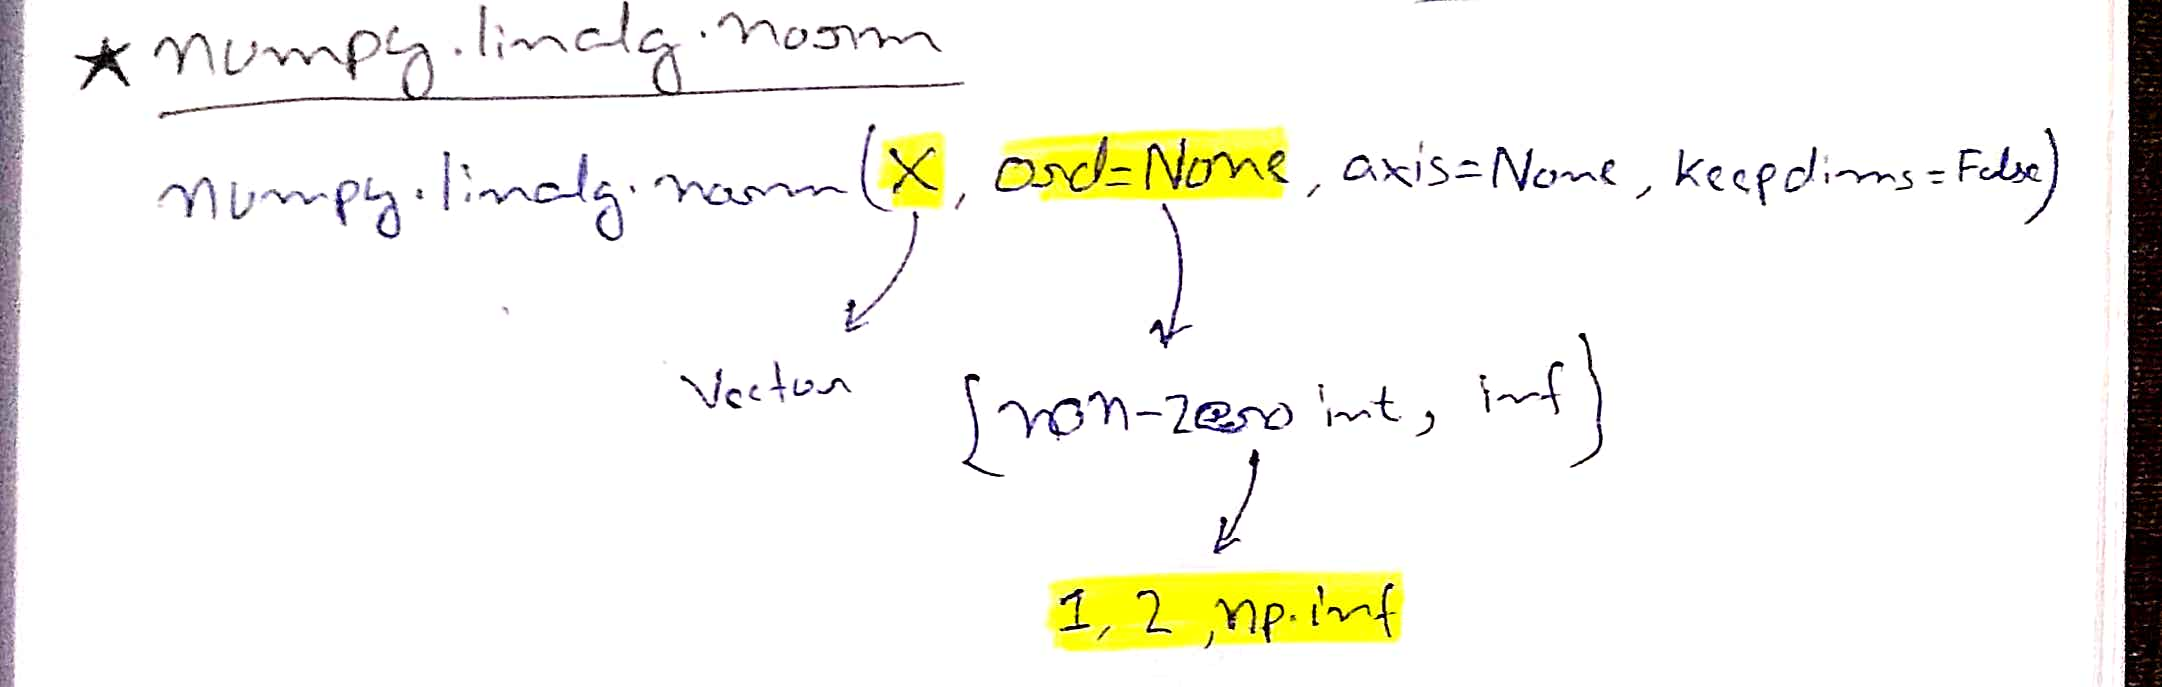 ★ numpy.linalg.norm
numpy.linalg.norm(X, ord=None, axis=None, keepdims=False)
Vector
{non-zero int, inf}
1, 2, np.inf